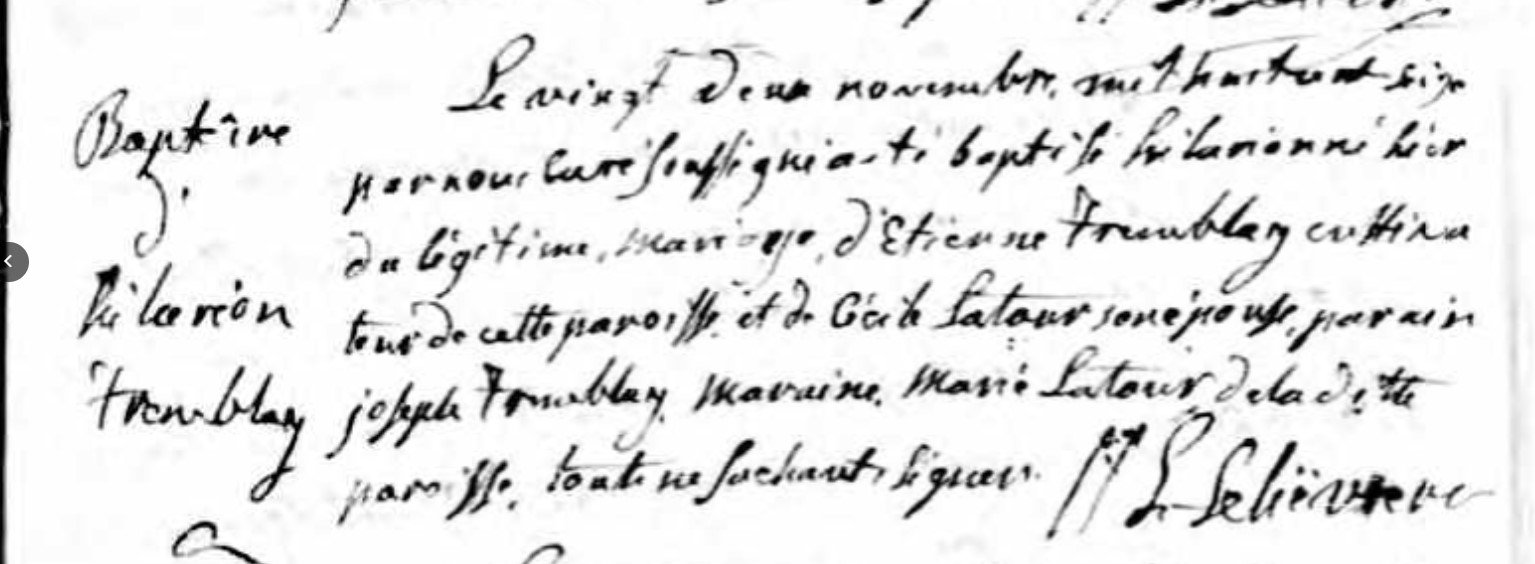 Baptême
d'
hilarion
tremblay
Le vingt deux novembre, mil huit cent seize
par nous Curé soussigné a été baptisé hilarion né hier
du légitime mariage d'Etienne Tremblay cultiva
teur de cette paroisse et de Cécile Latour son épouse, parain
joseph Tremblay, maraine, marie Latour de la ditte
paroisse, touts ne sachants signer.
L. Lelièvre